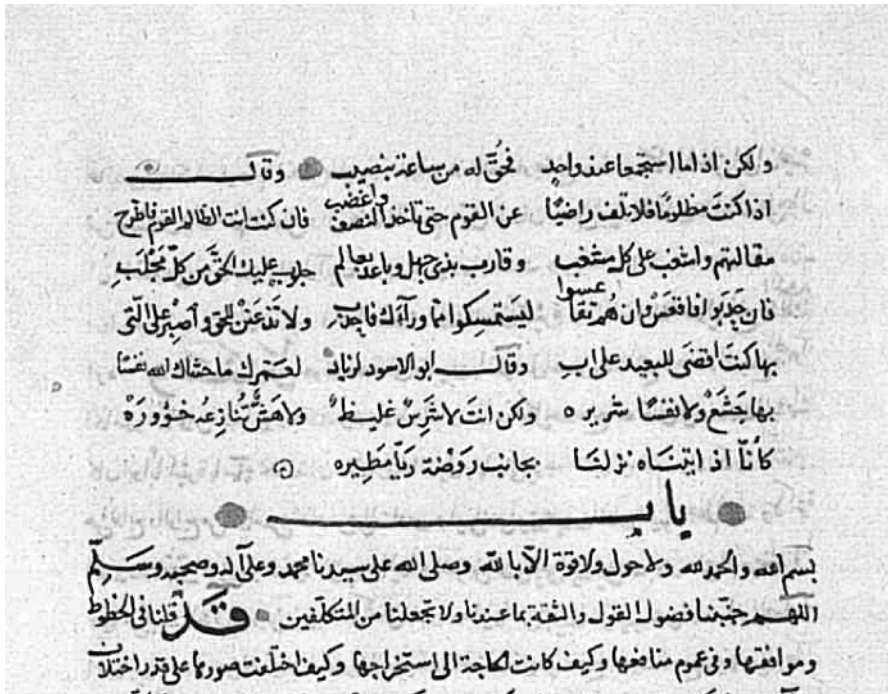 ولكن اذا ما استجمعا عند واحد فحق له من ساعة بنصيب وقال
اذا كنت مظلومًا فلا تلف راضيًا عن القوم حتى تاخذ النصف واغضب فان كنت انت الظالم القوم فاطرح
مقالتهم واشغب على كل مشغب وقارب بذى جهل وباعد بعالم جلوب عليك الحق من كل مجلب
فان حدبوا فاقعس وان هم تقاعسوا ليستمسكوا مما ورآءك فاحدب ولا تدعنى للتى واصبر على التى
بها كنت اقضى للبعيد على اب وقال ابو الاسود لزياد لعمرك ما حشاك الله نفسًا
بها جشع ولا نفسًا شريره ولكن انت لا شرس غليظ ولا هش تنازعه خؤوره
كأنّا اذ اتيناه نزلنا بجانب روضة ريّا مطيره
باب
بسم الله والحمد لله ولا حول ولا قوة الا بالله وصلى الله على سيدنا محمد وعلى آله وصحبه وسلم
اللهم جنبنا فضول القول والثقة بما عندنا ولا تجعلنا من المتكلفين قد قلنا فى الخطوط
ومواقفها وفى عموم منافعها وكيف كانت الحاجة الى استخراجها وكيف اختلفت صورها على قدر اختلاف